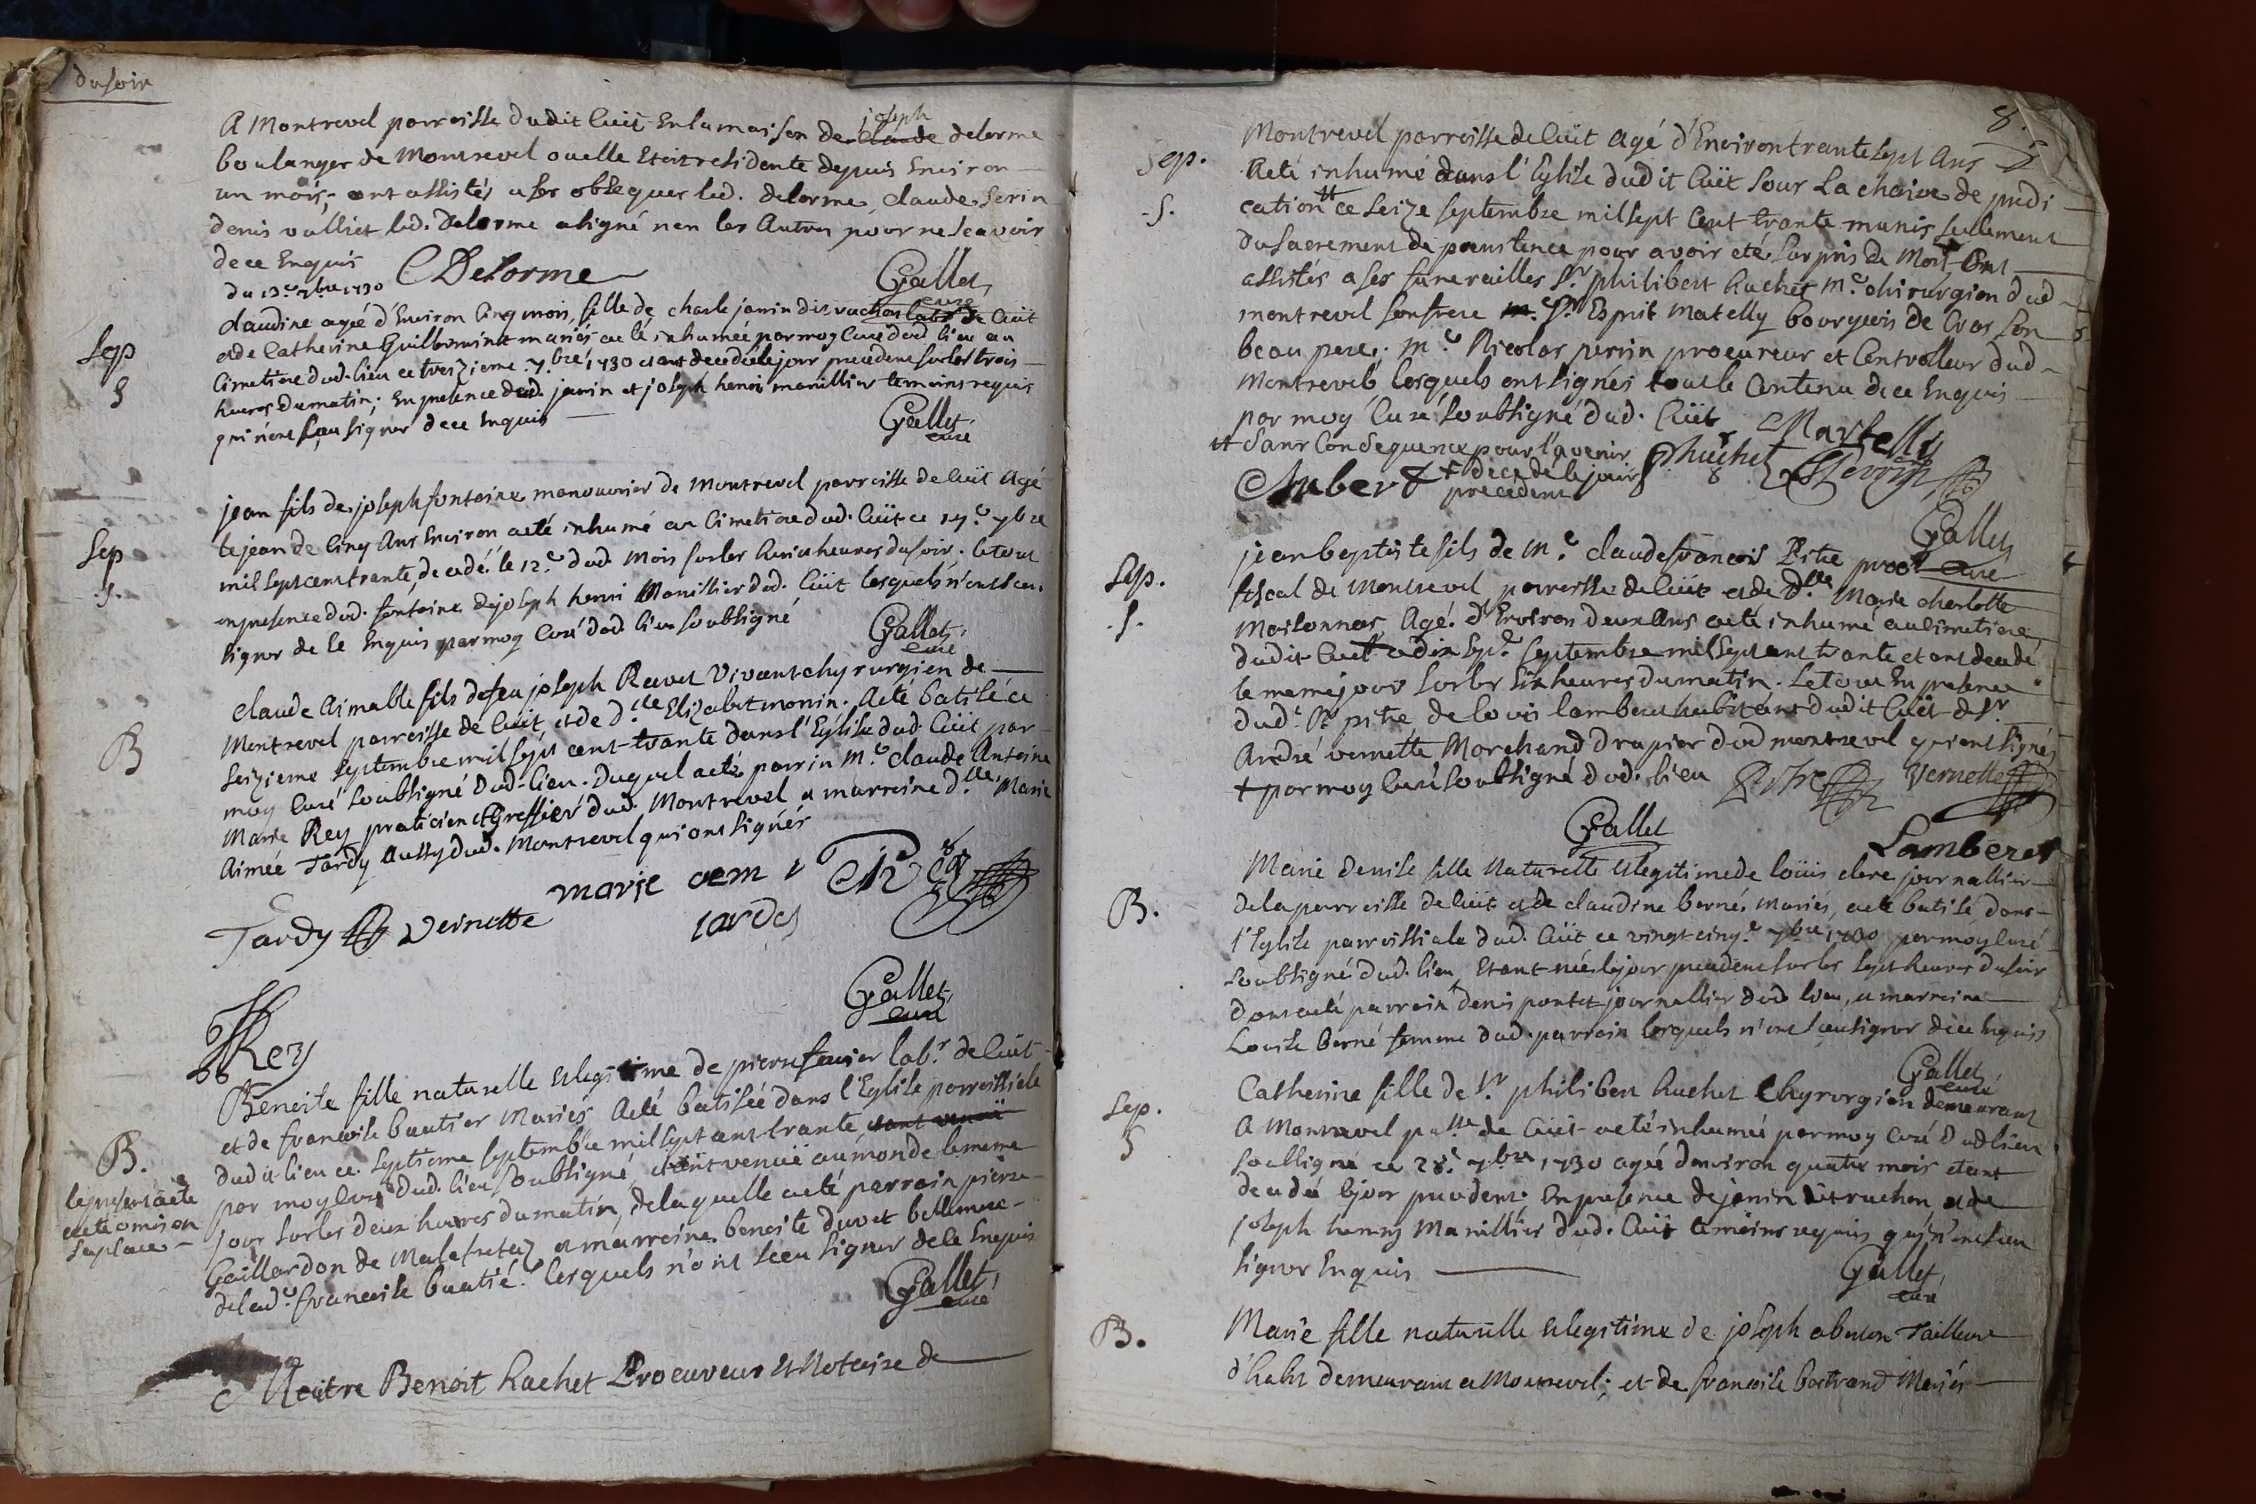 du soir
A Montrevel parroisse dudit Cuët En la maison de Claude joseph delorme
boulanger de Montrevel ou elle Etoit residente depuis Environ
un mois; ont assistés a ses obseques led. delorme, claude serin
denis vulliet led. Delorme a signé non les Autres pour ne scavoir
de ce Enquis
Delorme
Gallet
curé
du 13.e 7bre 1730
claudine agée d'Environ Cinq mois, fille de charle janin dit ruchon lab.r de Cüit
et de Catherine Guillermin mariés a eté inhumée par moy Curé dud. lieu au
Cimetiere dud. lieu ce treizieme 7.bre 1730 etant decedée le jour precedent sur les trois
heures du matin; En presence dud. janin et joseph henri manillier temoins requis
qui n'ont sçeu signer de ce Enquis
Gallet
curé
Sep
S
jean fils de joseph fontaine manouvrier de Montrevel parroisse de Cuit Agé
le jean de Cinq Ans Environ a eté inhumé au Cimetiere dud. Cüit ce 14.e 7bre
mil sept cent trante, decedé le 12.e dud. mois sur les heures du soir. le tout
en presence dud. fontaine de joseph henri Manillier dud. Cüit lesquels n'ont sceu
signer de ce Enquis par moy Curé dud. lieu soubsigné
Gallet
curé
Sep
.S.
claude Aimable fils de feu joseph Ravet Vivant chyrurgien de
Montrevel parroisse de Cuit, et de d.lle Elizabet monin. A eté batisé ce
seizieme septembre mil sept cent trante dans l'Eglise dud. Cüit par
moy Curé soubsigné dud. lieu. Duquel a eté parrin M.e claude Antoine
Marie Rey praticien et Greffier dud. Montrevel et marraine d.lle Marie
Aimée Tardy Aussy dud. Montrevel qui ont signés
B
marie aem e Rey
Tardy Vernette tardy
Gallet
curé
Rey
Benoite fille naturelle et legitime de pierre favier lab.r de Cüit
et de francoise buatier Mariés A eté batisée dans l'Eglise parroissiale
dudit lieu ce septieme septembre mil sept cent trante etant venuë
par moy Curé dud. lieu soubsigné, etant venuë au monde le meme
jour sur les deux heures du matin, de laquelle a eté parrain pierre
Gaillardon de Malafretaz et marraine benoite duvet bellemere
de lad.e francoise buatié. lesquels n'ont sceu signer de ce Enquis
Gallet
curé
B.
le present acte
a eté omis en
sa place
Maitre Benoit huchet Procureur et Notaire de
8.
Montrevel parroisse de Cüit agé d'Environ trante sept Ans
A eté inhumé dans l'Eglise dudit Cüet sous La chaire de predi
cation ce seize septembre mil sept Cent trante munis seulement
du sacrement de penitence pour avoir eté surpris de Mort, Ont
assistés a ses funerailles S.r philibert huchet M.e chirurgien dud
montrevel son frere S.r Esprit Matelly bourgeois de Cras son
beau pere; M.e Nicolas perrin procureur et Controlleur dud
Montrevel lesquels ont signés tout le Contenu de ce Enquis
par moy Curé soubsigné dud. Cüit
sans Consequence pour l'avenir
+ decedé le jour
precedent
Martelly
huchet
Perrin
Aubert
Gallet
curé
Sep.
.S.
jean baptiste fils de M.e claude francois Pitre proc.r
fiscal de Montrevel parroisse de Cüit et de D.lle Marie charlotte
Maisonnas, Agé d'Environ deux Ans a eté inhumé au cimetiere
dudit Cuet ce dix sep.e septembre mil sept cent trante etant decedé
le meme jour sur les six heures du matin. Le tout En presence
dud.t S.r pitre de lovis lambert habitant dudit Cüit et S.r
André vernette Marchand Drapier dud montrevel qui ont signés
+ par moy Curé soubsigné dud. lieu
Pitre Vernette
Gallet
Lamberet
Sep.
.S.
Marie Denise fille Naturelle et legitime de loüis clere journallier
de la parroisse de Cüit et de claudine berné Mariés, a eté batisé dans
l'Eglise parroissiale dud. Cüit ce vingt cinq.e 7bre 1730 par moy Curé
soubsigné dud. lieu, Etant née le jour precedent sur les sept heures du soir
dont a eté parrain denis pontet journallier dud. lieu, et marraine
Louise berné femme dud. parrain lesquels n'ont sceu signer de ce Enquis
Gallet
curé
B.
Catherine fille de S.r philibert huchet Chyrurgien demeurant
A Montrevel p.sse de Cüit a eté inhumée par moy Curé dud lieu
soussigné ce 28.e 7bre 1730 agée d'environ quatre mois etant
decedée le jour precedent. En presence de janin dit ruchon, et de
joseph henry Manillier dud. Cüit temoins requis qui n'ont sceu
signer Enquis
Gallet
curé
Sep.
S
B.
Marie fille naturelle et legitime de joseph abulon Tailleur
d'habit demeurant a Montrevel; et de francoise bertrand Mariés